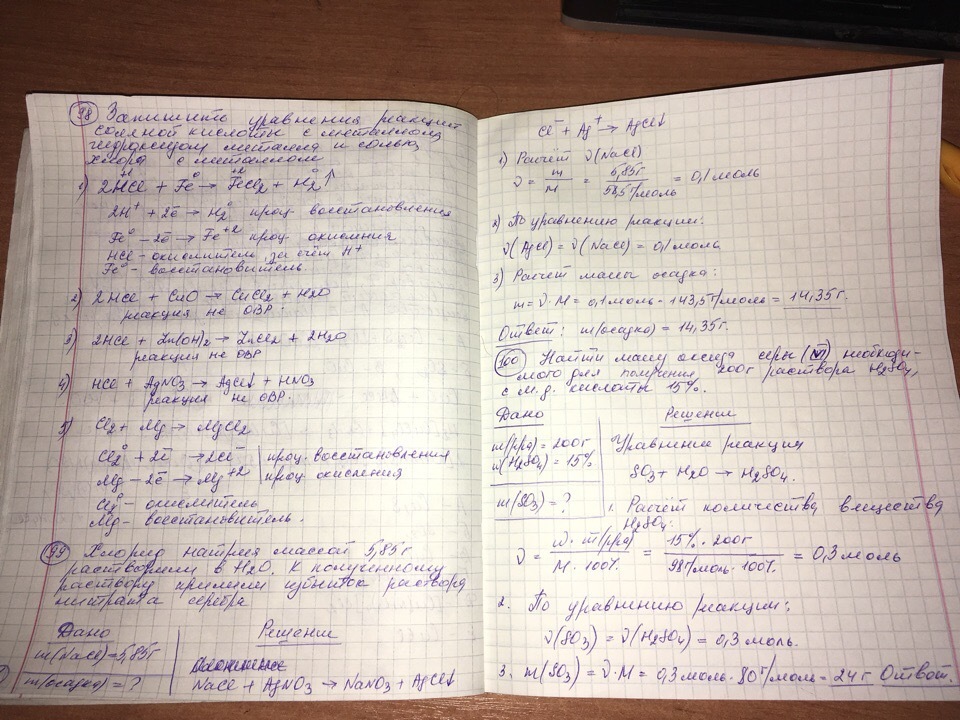 98 Запишите уравнения реакций
соляной кислоты с металлом,
гидроксидом металла и солью,
хлора с металлом
+1 0 +2 0
1) 2HCl + Fe → FeCl2 + H2↑
2H+ + 2ē → H2 проц. восстановления
Fe0 - 2ē → Fe+2 проц. окисления
HCl - окислитель, за счёт H+
Fe0 - восстановитель.
2) 2HCl + CuO → CuCl2 + H2O
реакция не ОВР.
3) 2HCl + Zn(OH)2 → ZnCl2 + 2H2O
реакция не ОВР
4) HCl + AgNO3 → AgCl↓ + HNO3
реакция не ОВР.
5) Cl2 + Mg → MgCl2
Cl2 0 + 2ē → 2Cl- проц. восстановления
Mg - 2ē → Mg+2 проц. окисления
Cl2 0 - окислитель
Mg - восстановитель.
99 Хлорид натрия массой 5,85г
растворили в H2O. К полученному
раствору прилили избыток раствора
нитрата серебра
Дано Решение
m(NaCl)=5,85г
m(осадка)=?
NaCl + AgNO3 → NaNO3 + AgCl↓
Cl- + Ag+ → AgCl↓
1) Расчёт ν(NaCl)
ν = m/M = 5,85г/58,5г/моль = 0,1 моль
2) По уравнению реакции:
ν(AgCl) = ν(NaCl) = 0,1 моль
3) Расчет массы осадка:
m = ν · M = 0,1 моль · 143,5г/моль = 14,35г.
Ответ: m(осадка) = 14,35г.
100 Найти массу оксида серы (VI) необходи-
мого для получения 200г раствора H2SO4,
с м.д. кислоты 15%.
Дано Решение
m(р-ра) = 200г
w(H2SO4) = 15%
m(SO3) = ?
Уравнение реакции
SO3 + H2O → H2SO4.
1. Расчёт количества вещества
H2SO4:
ν = w · m(р-ра)/M · 100% = 15% · 200г/98г/моль · 100% = 0,3 моль
2. По уравнению реакции:
ν(SO3) = ν(H2SO4) = 0,3 моль.
3. m(SO3) = ν · M = 0,3 моль · 80г/моль = 24г Ответ.